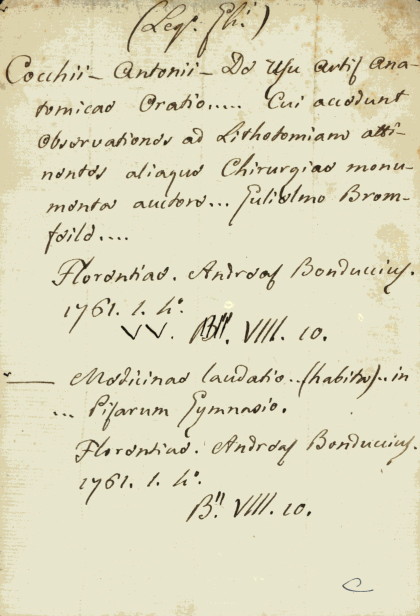 (Leg. Gli.)
Cocchii — Antonii — De Usu artis Ana-
tomicae Oratio.... Cui accedunt
Observationes ad Lithotomiam atti-
nentes aliaque Chirurgiae monu-
menta auctore... Gulielmo Brom-
feild....
Florentiae. Andreas Bonduccius.
1761. 1. 4º.
VV. B". VIII. 10.
— Medicinae laudatio..(habita)..in
... Pisarum Gymnasio.
Florentiae. Andreas Bonduccius.
1761. 1. 4º.
B". VIII. 10.
C